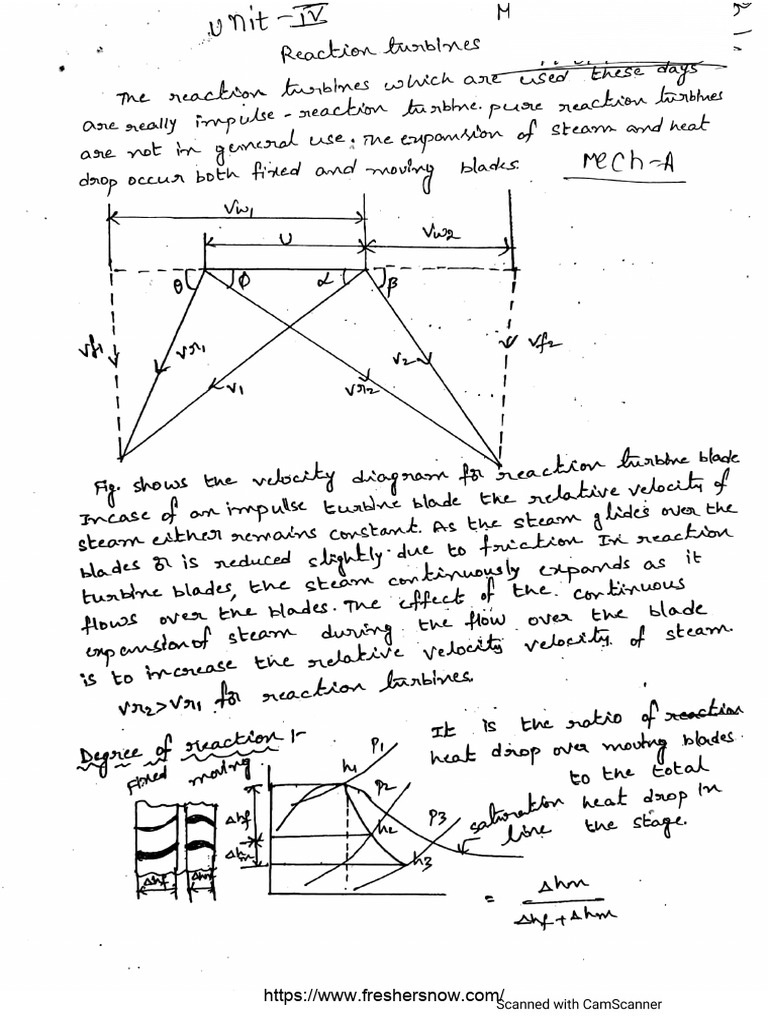 unit-IV
M
Reaction turbines
The reaction turbines which are used these days
are really impulse-reaction turbine. pure reaction turbines
are not in general use. The expansion of steam and heat
drop occur both fixed and moving blades.
MECH-A
Vw1
U
Vw2
θ
ϕ
α
β
Vf1
Vr1
V1
Vr2
V2
Vf2
Fig. shows the velocity diagram for reaction turbine blade
Incase of an impulse turbine blade the relative velocity of
steam either remains constant. As the steam glides over the
blades or is reduced slightly due to friction In reaction
turbine blades, the steam continuously expands as it
flows over the blades. The effect of the continuous
expansion of steam during the flow over the blade
is to increase the relative velocity velocity. of steam.
Vr2>Vr1 for reaction turbines.
Degree of reaction :-
It is the ratio of reaction
heat drop over moving blades
to the total
heat drop in
the stage.
saturation
line
Fixed moving
Δhf
Δhm
Δhf
Δhm
h1
P1
P2
h2
P3
h3
= Δhm
Δhf + Δhm
https://www.freshersnow.com/
Scanned with CamScanner